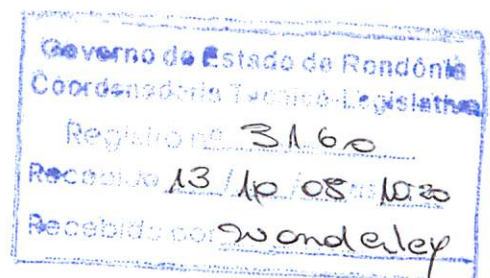 Governo do Estado de Rondônia
Coordenadoria Técnico-Legislativa
Registro nº 3160
Recebido 13 / 10 08 10:20
Recebido por Wanderley